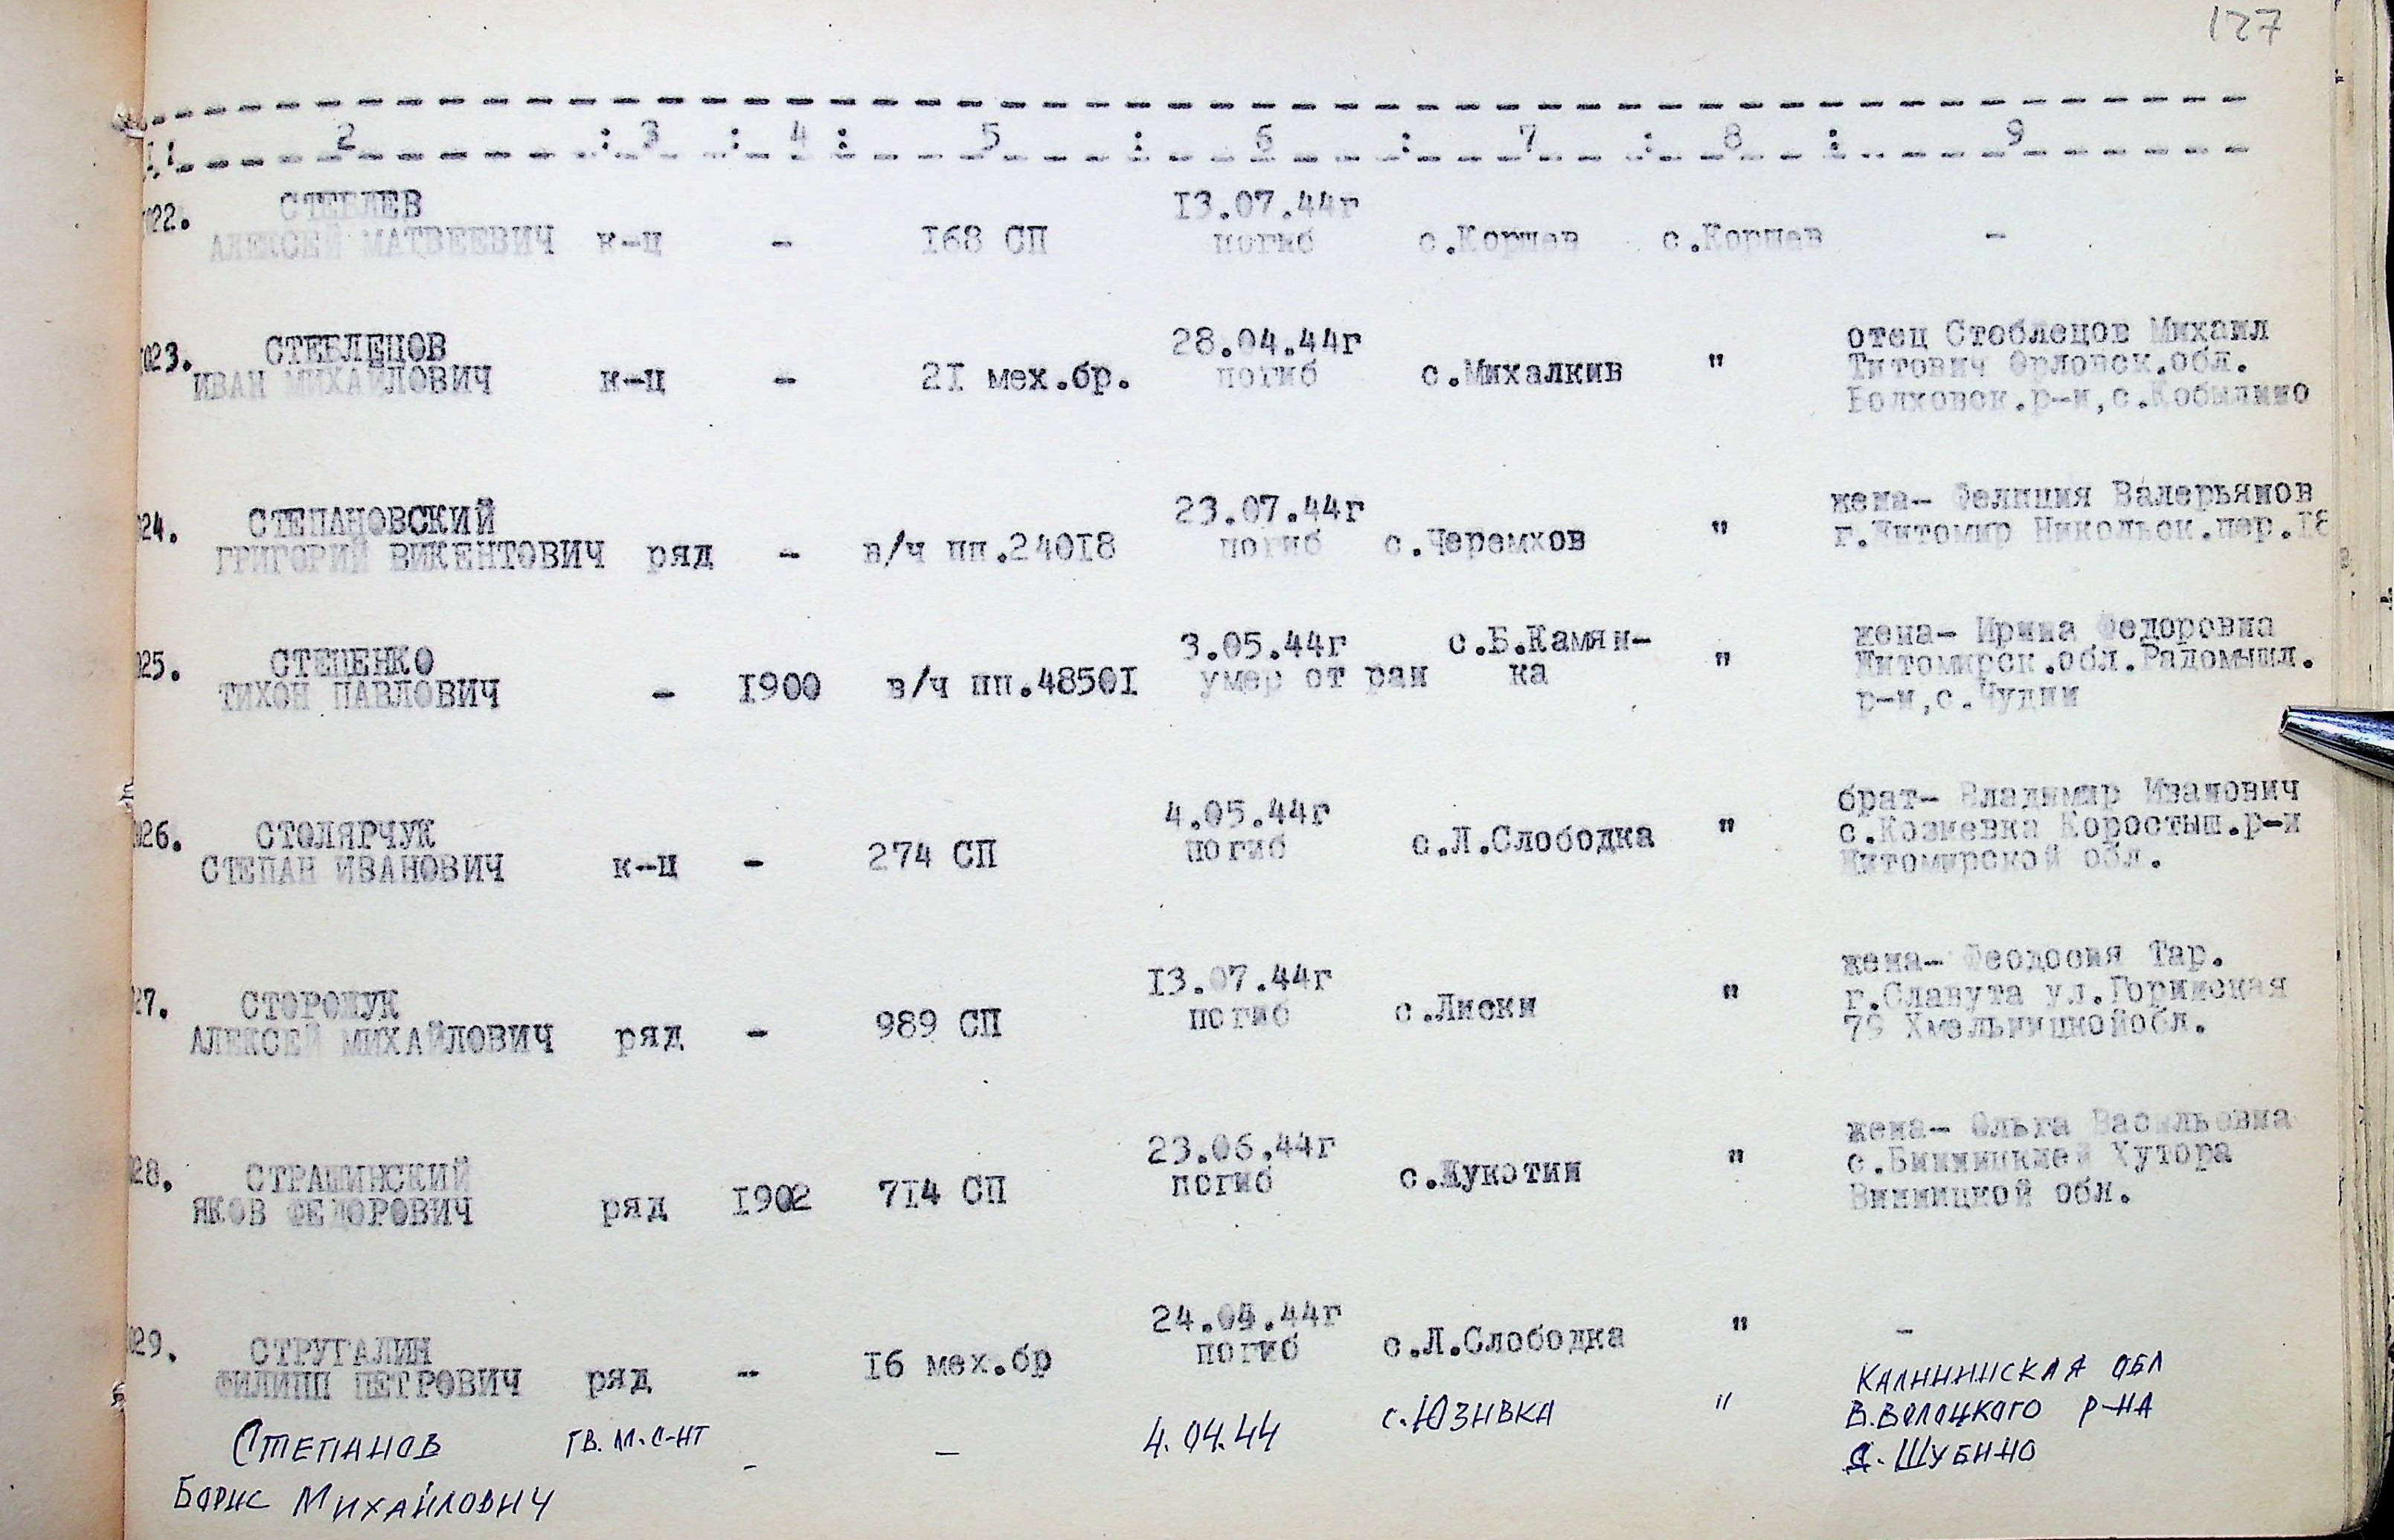 127
1: 2 : 3 : 4 : 5 : 6 : 7 : 8 : 9
022. СТЕБЛЕВ 13.07.44г
АЛЕКСЕЙ МАТВЕЕВИЧ к-ц - 168 СП погиб с.Коршев с.Коршев -
023. СТЕБЛЕЦОВ 28.04.44г отец Стоблецов Михаил
ИВАН МИХАЙЛОВИЧ к-ц - 21 мех.бр. погиб с.Михалкив " Титович Орловск.обл.
Болховск.р-н,с.Кобылино
024. СТЕПАНОВСКИЙ 23.07.44г жена- Фелиция Валерьянов
ГРИГОРИЙ ВИКЕНТОВИЧ ряд - в/ч пп.24018 погиб с.Черемхов " г.Житомир Никольск.пер.18
025. СТЕЦЕНКО 3.05.44г с.Б.Камян- жена- Ирина Федоровна
ТИХОН ПАВЛОВИЧ - 1900 в/ч пп.48501 умер от ран ка " Житомирск.обл.Радомышл.
р-н,с.Чудин
026. СТОЛЯРЧУК 4.05.44г брат- Владимир Иванович
СТЕПАН ИВАНОВИЧ к-ц - 274 СП погиб с.Л.Слободка " с.Козиевка Коростыш.р-н
Житомирской обл.
27. СТОРОЖУК 13.07.44г жена- Феодосия Тар.
АЛЕКСЕЙ МИХАЙЛОВИЧ ряд - 989 СП погиб с.Лиски " г.Славута ул.Горинская
79 Хмельницкойобл.
28. СТРАШИНСКИЙ 23.06.44г жена- Ольга Васильовна
ЯКОВ ФЕДОРОВИЧ ряд 1902 714 СП погиб с.Жукотин " с.Винницкией Хутора
Винницкой обл.
029. СТРУГАЛИН 24.04.44г
ФИЛИПП ПЕТРОВИЧ ряд - 16 мех.бр погиб с.Л.Слободка " -
Степанов гв. м. с-нт - - 4.04.44 с.Юзивка " Калининская обл
Борис Михайлович В.Волоцкого р-на
с. Шубино